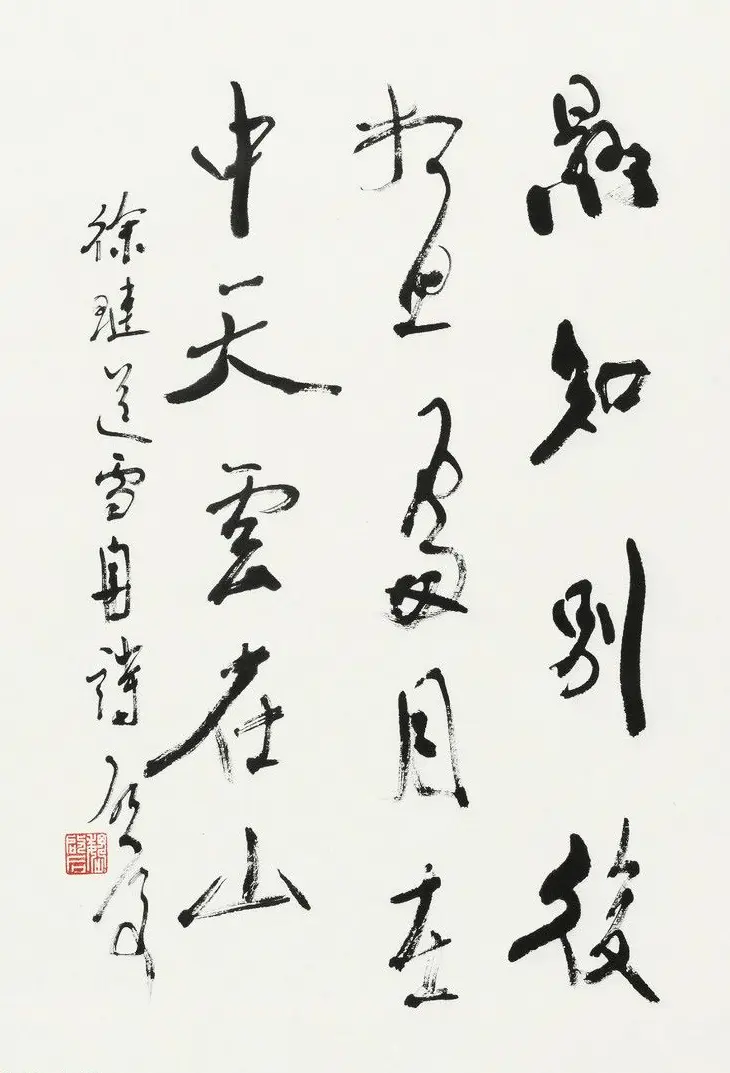 懸知別後
相思處月在
中天雲在山
徐璉送雪舟詩